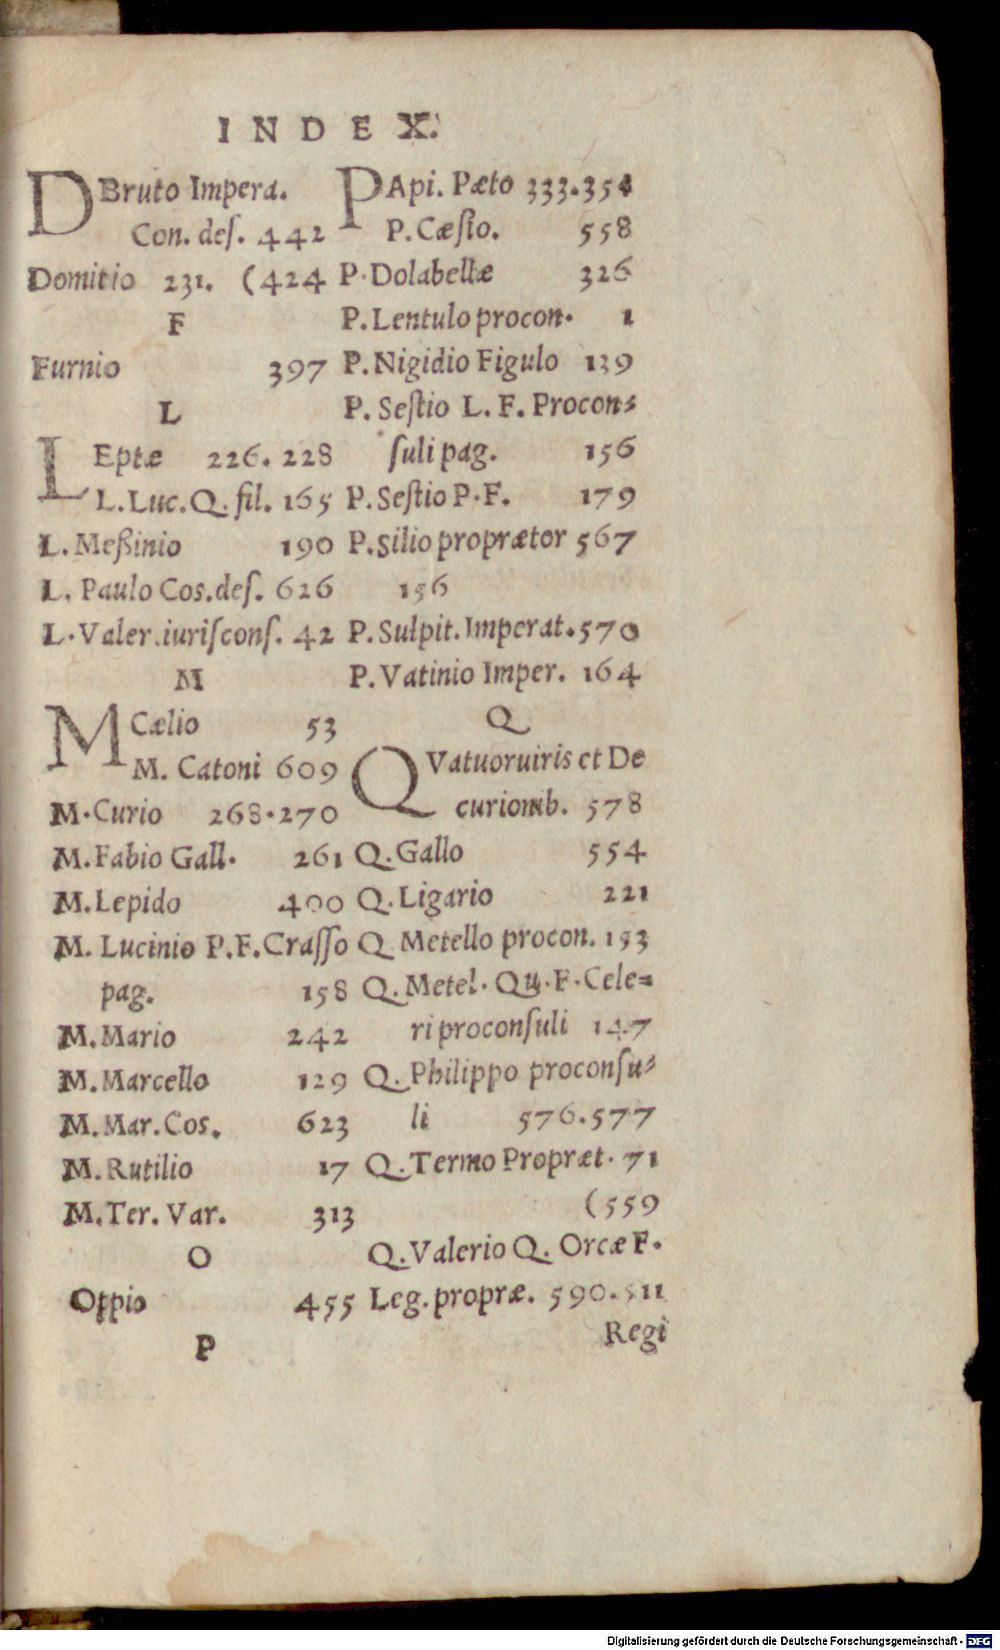 INDEX.
D Bruto Impera.
Con. deſ. 442
Domitio 231. (424
F
Furnio 397
L
LEptæ 226. 228
L. Luc. Q. fil. 165
L. Meßinio 190
L. Paulo Cos. deſ. 626
L. Valer. iuriſconſ. 42
M
M Cælio 53
M. Catoni 609
M. Curio 268. 270
M. Fabio Gall. 261
M. Lepido 400
M. Lucinio P. F. Craſſo
pag. 158
M. Mario 242
M. Marcello 129
M. Mar. Cos. 623
M. Rutilio 17
M. Ter. Var. 313
O
Oppio 455
P
PApi. Pæto 333. 354
P. Cæſio. 558
P. Dolabellæ 326
P. Lentulo procon. 1
P. Nigidio Figulo 139
P. Seſtio L. F. Procon⸗
ſuli pag. 156
P. Seſtio P. F. 179
P. Silio proprætor 567
156
P. Sulpit. Imperat. 570
P. Vatinio Imper. 164
Q
QVatuoruiris et De
curionib. 578
Q. Gallo 554
Q. Ligario 221
Q. Metello procon. 153
Q. Metel. Qu. F. Cele⸗
ri proconſuli 147
Q. Philippo proconſu⸗
li 576. 577
Q. Termo Propræt. 71
(559
Q. Valerio Q. Orcæ F.
Leg. propræ. 590. 511
Regi
Digitalisierung gefördert durch die Deutsche Forschungsgemeinschaft - DFG